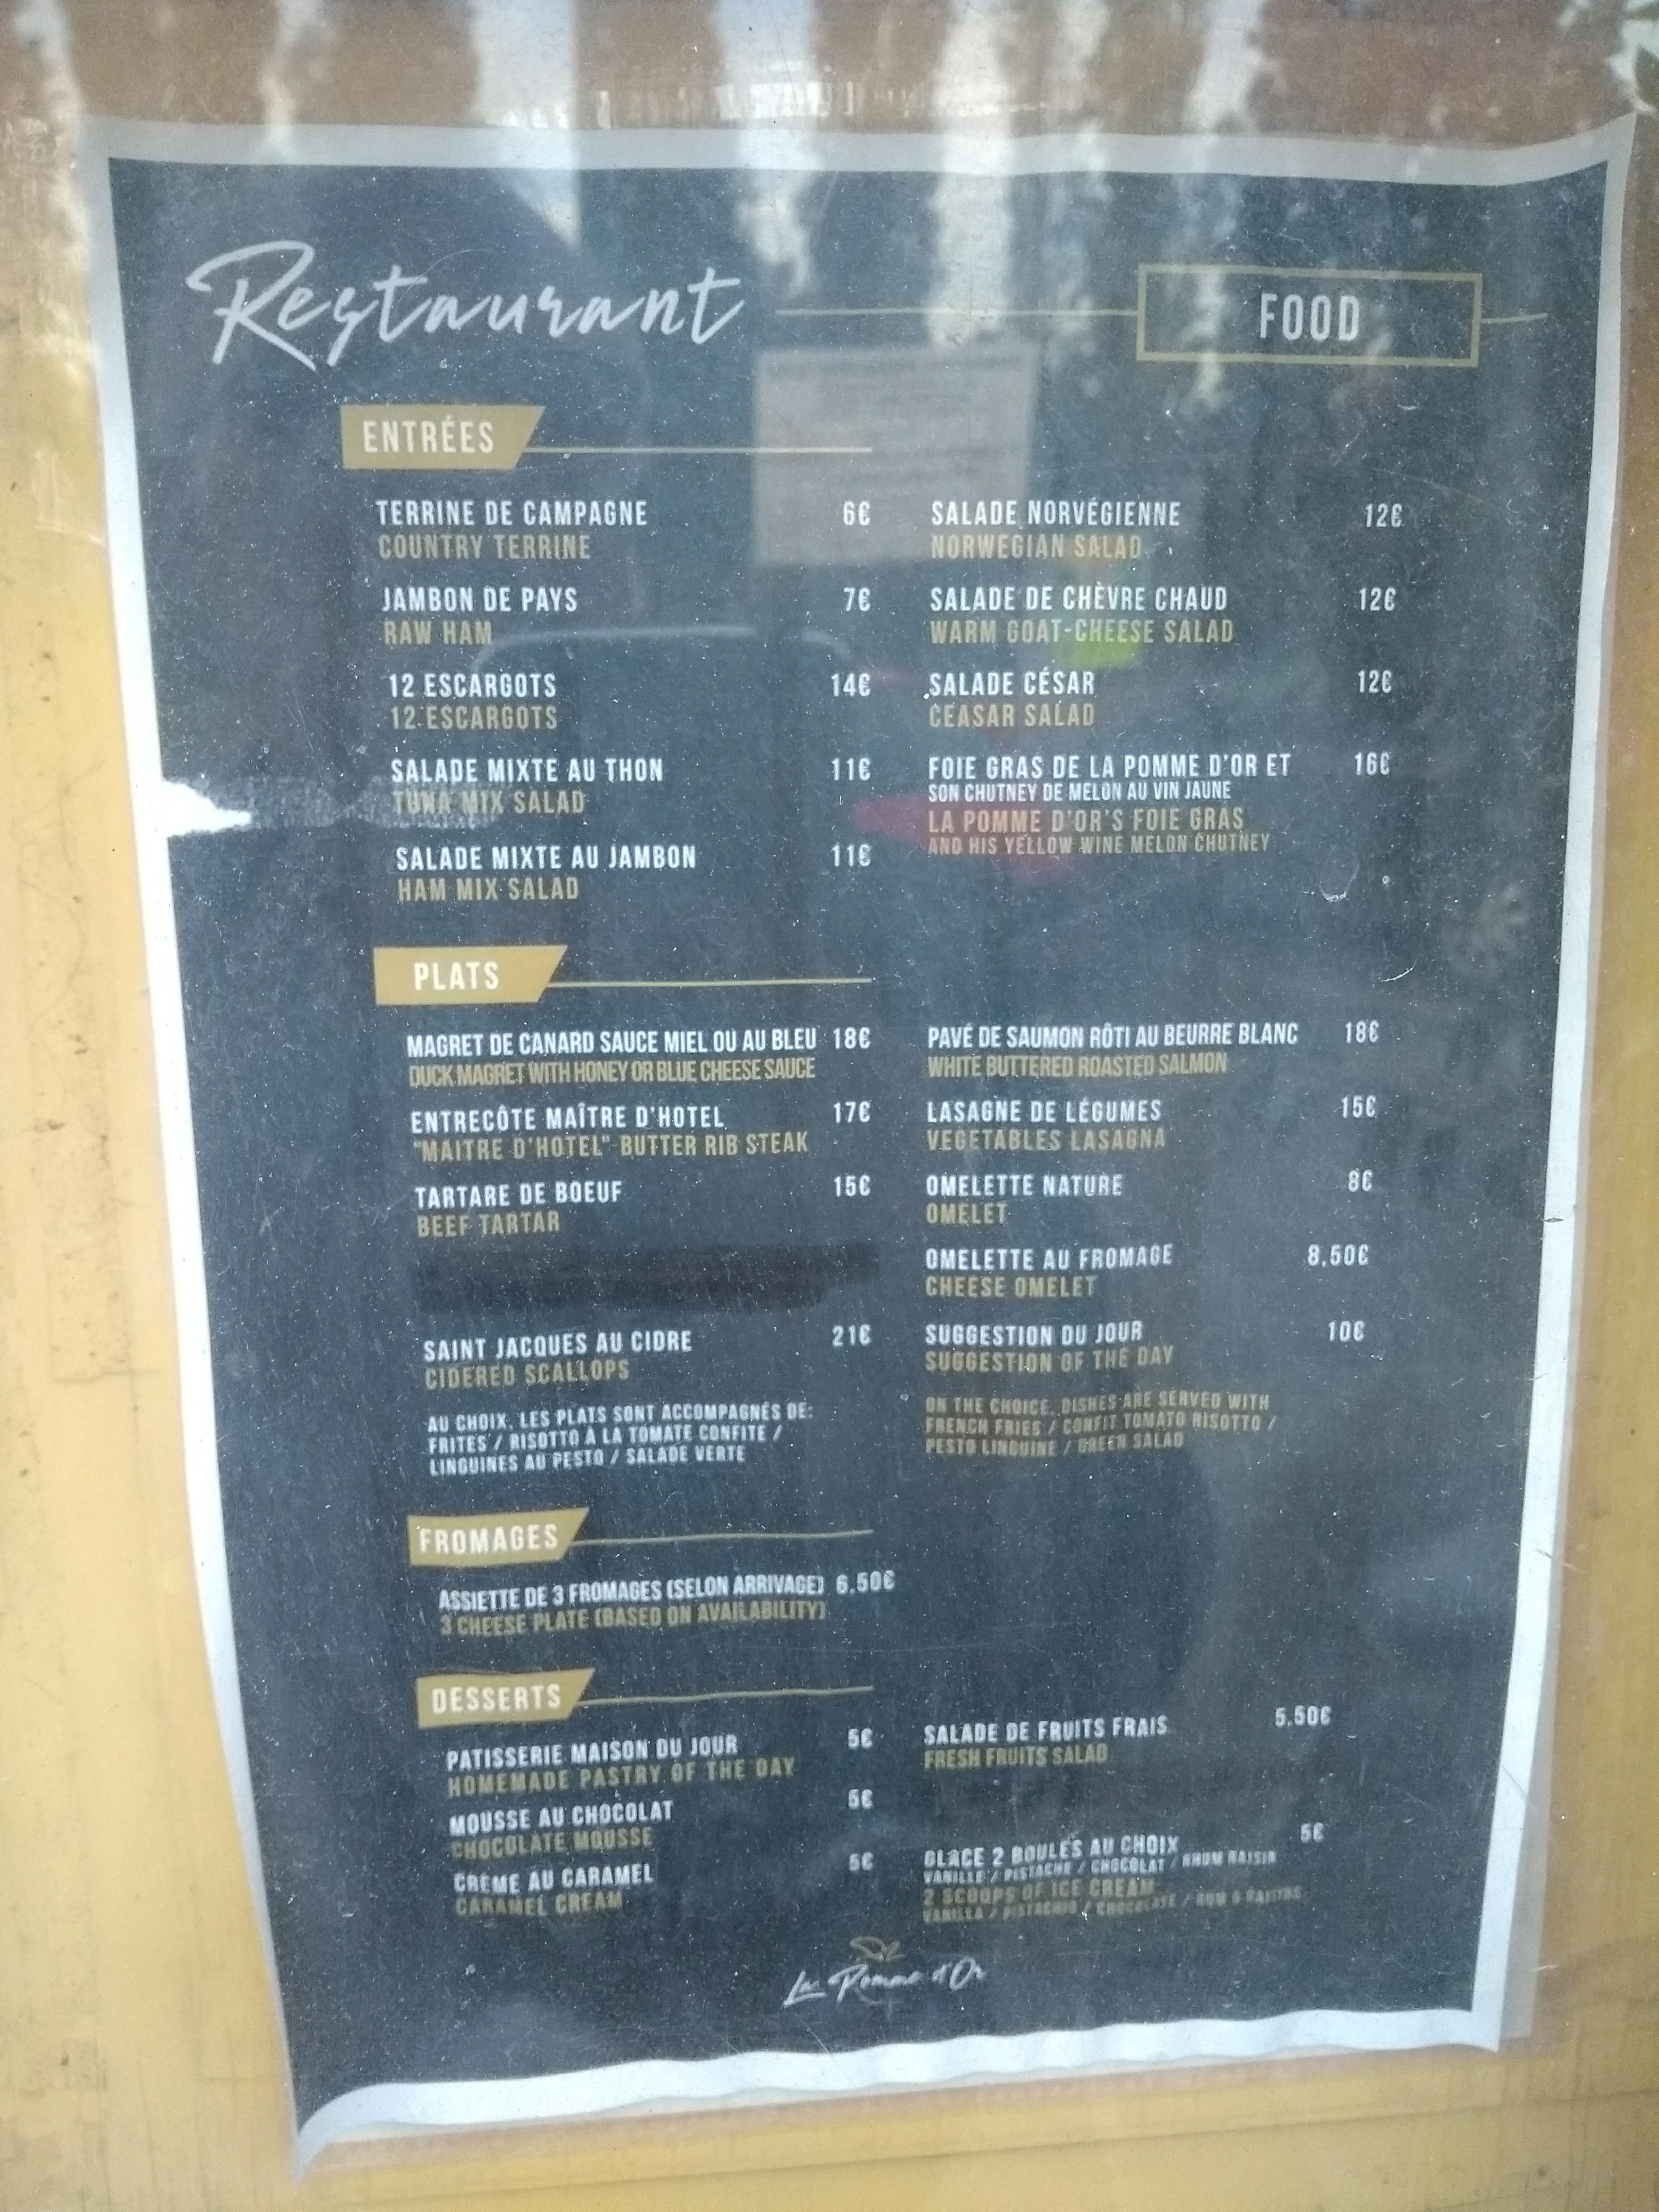 Restaurant
FOOD
ENTRÉES
TERRINE DE CAMPAGNE 6€
COUNTRY TERRINE
JAMBON DE PAYS 7€
RAW HAM
12 ESCARGOTS 14€
12 ESCARGOTS
SALADE MIXTE AU THON 11€
TUNA MIX SALAD
SALADE MIXTE AU JAMBON 11€
HAM MIX SALAD
SALADE NORVÉGIENNE 12€
NORWEGIAN SALAD
SALADE DE CHÈVRE CHAUD 12€
WARM GOAT-CHEESE SALAD
SALADE CÉSAR 12€
CEASAR SALAD
FOIE GRAS DE LA POMME D'OR ET 16€
SON CHUTNEY DE MELON AU VIN JAUNE
LA POMME D'OR'S FOIE GRAS
AND HIS YELLOW WINE MELON CHUTNEY
PLATS
MAGRET DE CANARD SAUCE MIEL OU AU BLEU 18€
DUCK MAGRET WITH HONEY OR BLUE CHEESE SAUCE
ENTRECÔTE MAÎTRE D'HOTEL 17€
"MAITRE D'HOTEL" BUTTER RIB STEAK
TARTARE DE BOEUF 15€
BEEF TARTAR
SAINT JACQUES AU CIDRE 21€
CIDERED SCALLOPS
AU CHOIX, LES PLATS SONT ACCOMPAGNÉS DE:
FRITES / RISOTTO À LA TOMATE CONFITE /
LINGUINES AU PESTO / SALADE VERTE
PAVÉ DE SAUMON RÔTI AU BEURRE BLANC 18€
WHITE BUTTERED ROASTED SALMON
LASAGNE DE LÉGUMES 15€
VEGETABLES LASAGNA
OMELETTE NATURE 8€
OMELET
OMELETTE AU FROMAGE 8,50€
CHEESE OMELET
SUGGESTION DU JOUR 10€
SUGGESTION OF THE DAY
ON THE CHOICE, DISHES ARE SERVED WITH
FRENCH FRIES / CONFIT TOMATO RISOTTO /
PESTO LINGUINE / GREEN SALAD
FROMAGES
ASSIETTE DE 3 FROMAGES (SELON ARRIVAGE) 6,50€
3 CHEESE PLATE (BASED ON AVAILABILITY)
DESSERTS
PATISSERIE MAISON DU JOUR 5€
HOMEMADE PASTRY OF THE DAY
MOUSSE AU CHOCOLAT 5€
CHOCOLATE MOUSSE
CRÈME AU CARAMEL 5€
CARAMEL CREAM
SALADE DE FRUITS FRAIS 5,50€
FRESH FRUITS SALAD
GLACE 2 BOULES AU CHOIX 5€
VANILLE / PISTACHE / CHOCOLAT / RHUM RAISIN
2 SCOOPS OF ICE CREAM
VANILLA / PISTACHIO / CHOCOLATE / RUM & RAISINS
La Pomme d'Or